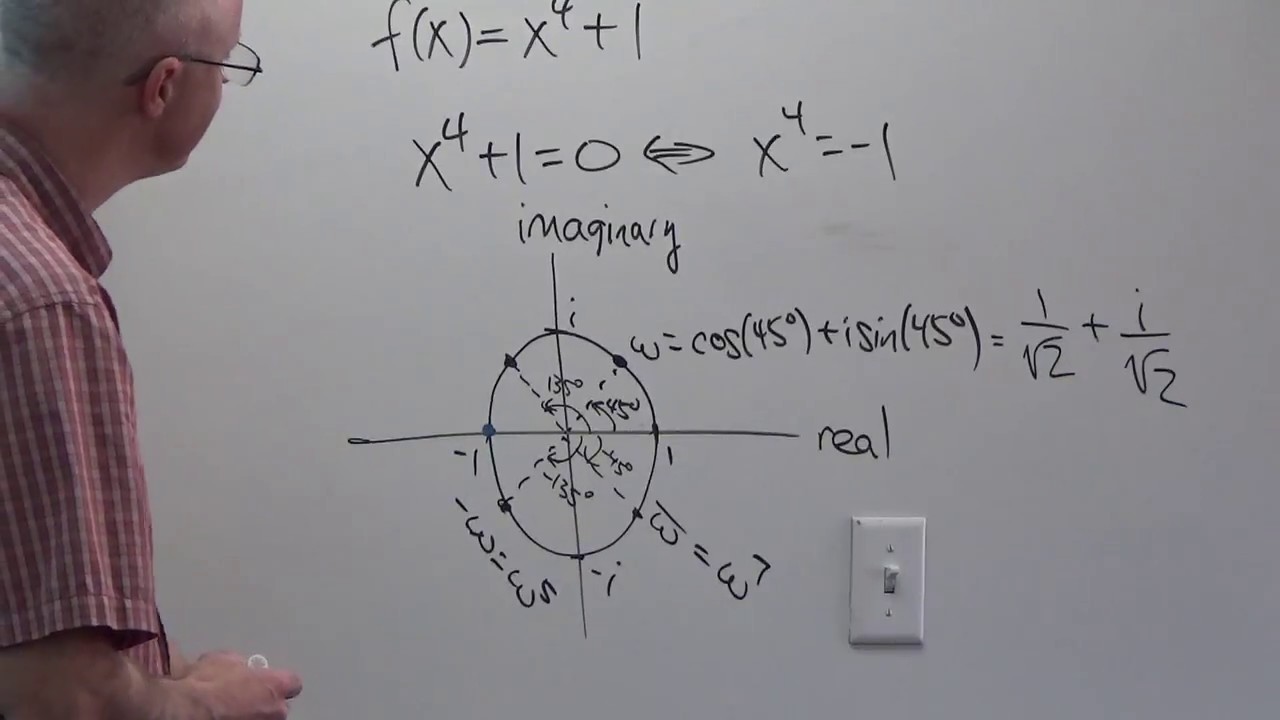 f(x)=x⁴+1
x⁴+1=0 ⇔ x⁴=-1
imaginary
i
ω=cos(45°)+isin(45°)=1/√2+i/√2
135°
45°
real
-1
1
-45°
-135°
-ω=ω⁵
ω̅=ω⁷
-i